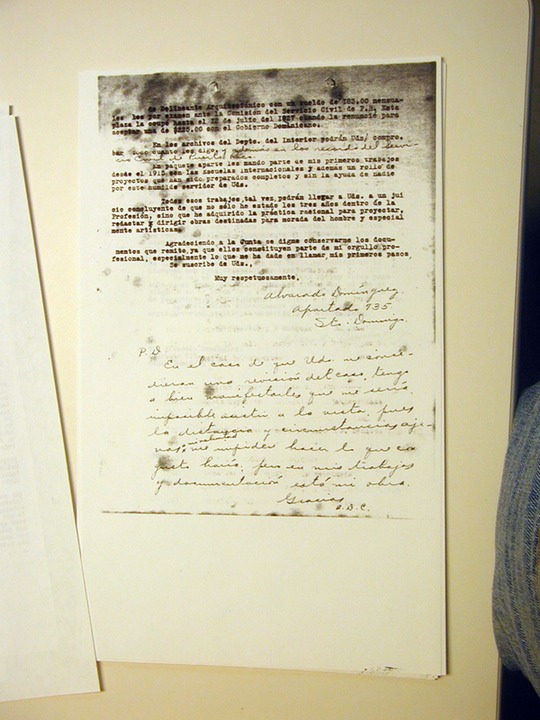 de Delineante Arquitectónico con un sueldo de 183.00 mensua-
les por examen ante la Comisión del Servicio Civil de P.R. Esta
plaza la ocupé hasta el 22 de julio del 1927 cuando la renuncié para
aceptar una de $225.00 con el Gobierno Dominicano.
En los archivos del Depto. del Interior podrán Uds. compro-
bar cuanto les digo, y además en los records del Servi-
cio Civil de Puerto Rico.
En paquete aparte les mando parte de mis primeros trabajos
desde el 1915 con las Escuelas Internacionales y además un rollo de
proyectos que han sido preparados completos y sin la ayuda de nadie
por este humilde servidor de Uds.
Todos esos trabajos, tal vez, podrán llevar a Uds. a un jui
cio concluyente de que no sólo he estado los tres años dentro de la
Profesión, sino que he adquirido la práctica racional para proyectar,
redactar y dirigir obras destinadas para morada del hombre y especial
mente artísticas.
Agradeciendo a la Junta se digne conservarme los docu-
mentos que remito, ya que ellos constituyen parte de mi orgullo pro-
fesional, especialmente lo que me ha dado en llamar, mis primeros pasos,
Se suscribe de Uds.,
Muy respetuosamente,
Alvarado Domínguez
Apartado 735
Sto. Domingo.
P.D.
En el caso de que Uds. me conce-
dieran una revisión del caso, tengo
a bien manifestarles que me sería
imposible asistir a la vista, pues
la distancia y circunstancias aje-
nas, me impiden hacer lo que con
gusto haría; pero en mis trabajos
y documentación está mi obra.
Gracias
A.D.C.